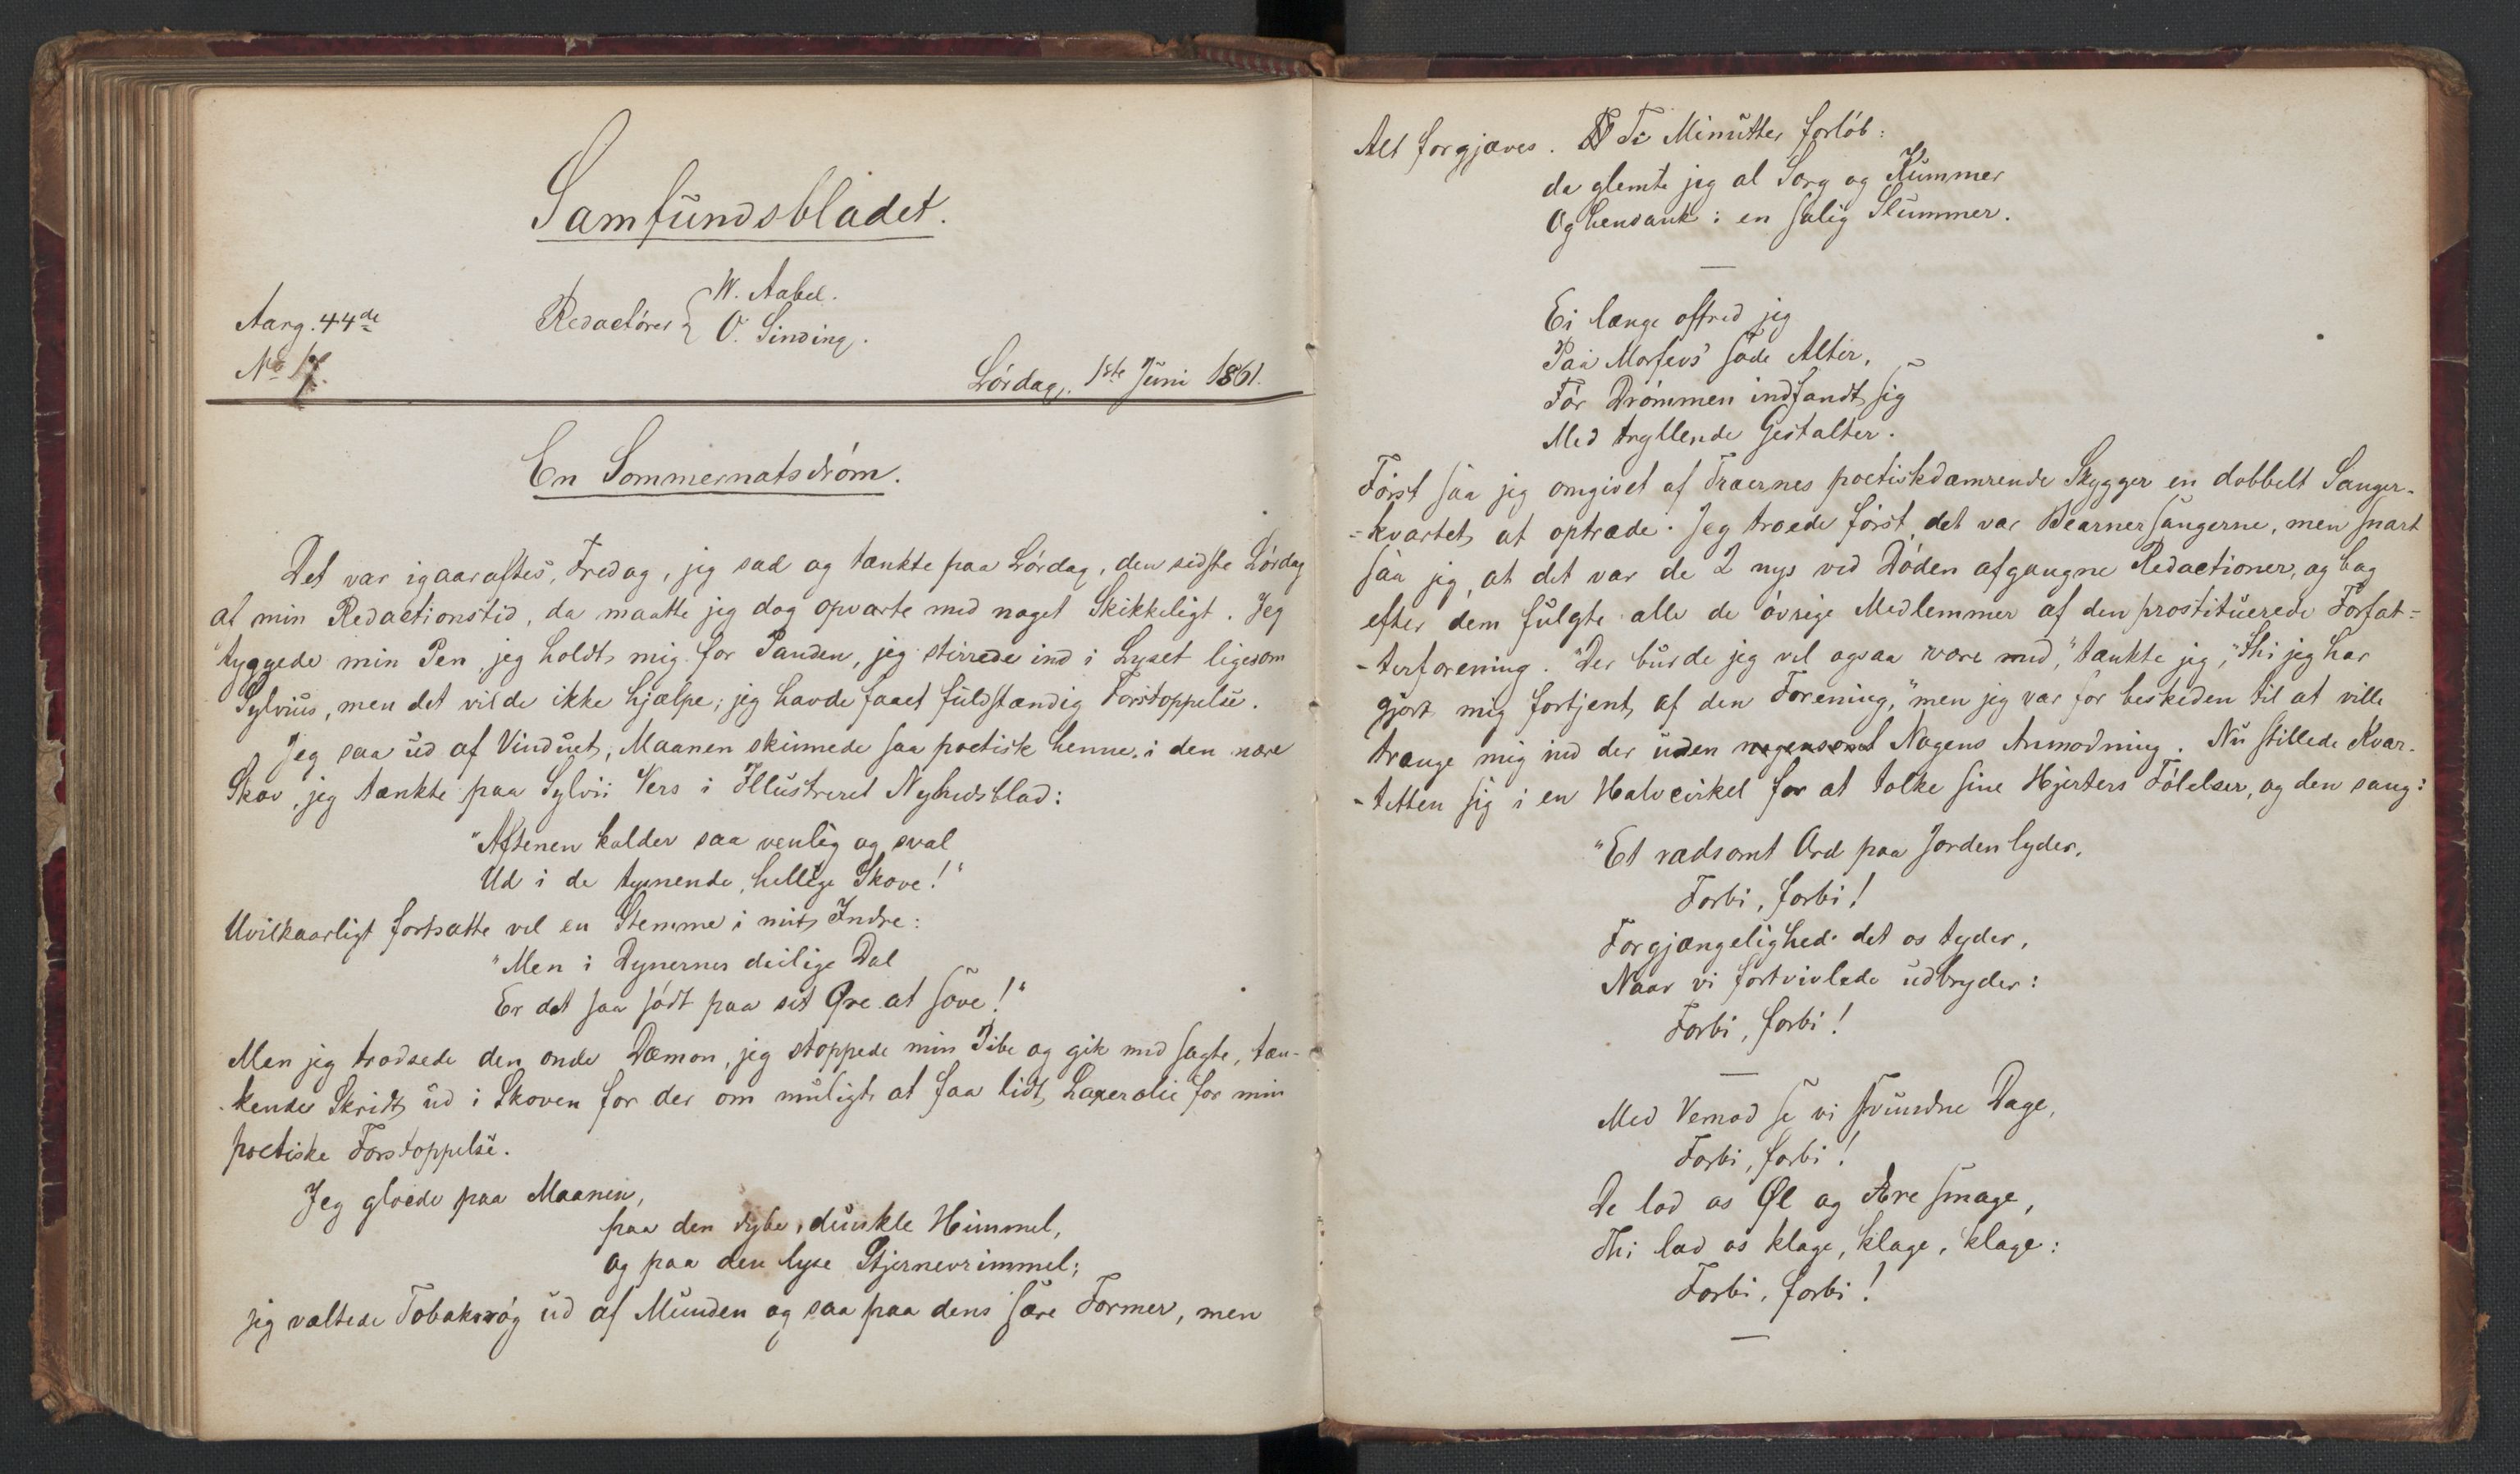 Samfundsbladet.
Aarg. 44de
Redactører { W. Aabel.
O. Sinding.
No 17.
Lørdag, 1ste Juni 1861.
En Sommernatsdrøm.
Det var igaaraftes, Fredag, jeg sad og tænkte paa Lørdag, den sidste Lørdag
af min Redactionstid, da maatte jeg dog opvarte med noget Skikkeligt. Jeg
tyggede min Pen, jeg holdt mig for Panden, jeg stirrede ind i Lyset ligesom
Sylvius, men det vilde ikke hjælpe; jeg havde faaet fuldstændig Forstoppelse.
Jeg saa ud af Vinduet, Maanen skinnede saa poetisk henne i den nære
Skov, jeg tænkte paa Sylvii Vers i Illustreret Nyhedsblad:
"Aftenen kalder saa venlig og sval
Ud i de tyenende, hellige Skove!"
Uvilkaarligt fortsatte vel en Stemme i mit Indre:
"Men i Dynernes deilige Dal
Er det saa sødt paa sit Øre at sove!"
Men jeg trodsede den onde Dæmon, jeg stoppede min Pibe og gik med sagte, tæn-
kende Skridt ud i Skoven for der om muligt at faa lidt Laxerolie for min
poetiske Forstoppelse.
Jeg gloede paa Maanen,
paa den dybe, dunkle Himmel,
og paa den lyse Stjernevrimmel;
jeg væltede Tobaksrøg ud af Munden og saa paa dens sære Former, men
Alt forgjæves. Ti Minutter forløb:
da glemte jeg al Sorg og Kummer
Og hensank i en salig Slummer.
Ei længe offred jeg
Paa Morfevs' søde Alter,
Før Drømmen indfandt sig
Med tryllende Gestalter.
Først saa jeg omgivet af Træernes poetiskdæmrende Skygger en dobbelt Sanger-
-kvartet at optræde. Jeg troede først det var Bearnersangerne, men snart
saa jeg, at det var de 2 nys ved Døden afgangne Redactioner, og bag
efter dem fulgte alle de øvrige Medlemmer af den prostituerede Forfat-
-terforening. "Der burde jeg vel ogsaa være med," tænkte jeg, "thi jeg har
gjort mig fortjent af den Forening," men jeg var for beskeden til at ville
trænge mig ind der uden nogensomt Nogens Anmodning. Nu stillede Kvar-
-tetten sig i en Halvcirkel for at tolke sine Hjerters Følelser, og den sang:
"Et rædsomt Ord paa Jorden lyder,
Forbi, forbi!
Forgjængelighed det os tyder,
Naar vi fortvivlede udbryder:
Forbi, forbi!
Med Vemod se vi svundne Dage,
Forbi, forbi!
De lod os Øl og Ære smage,
Thi lad os klage, klage, klage:
Forbi, forbi!